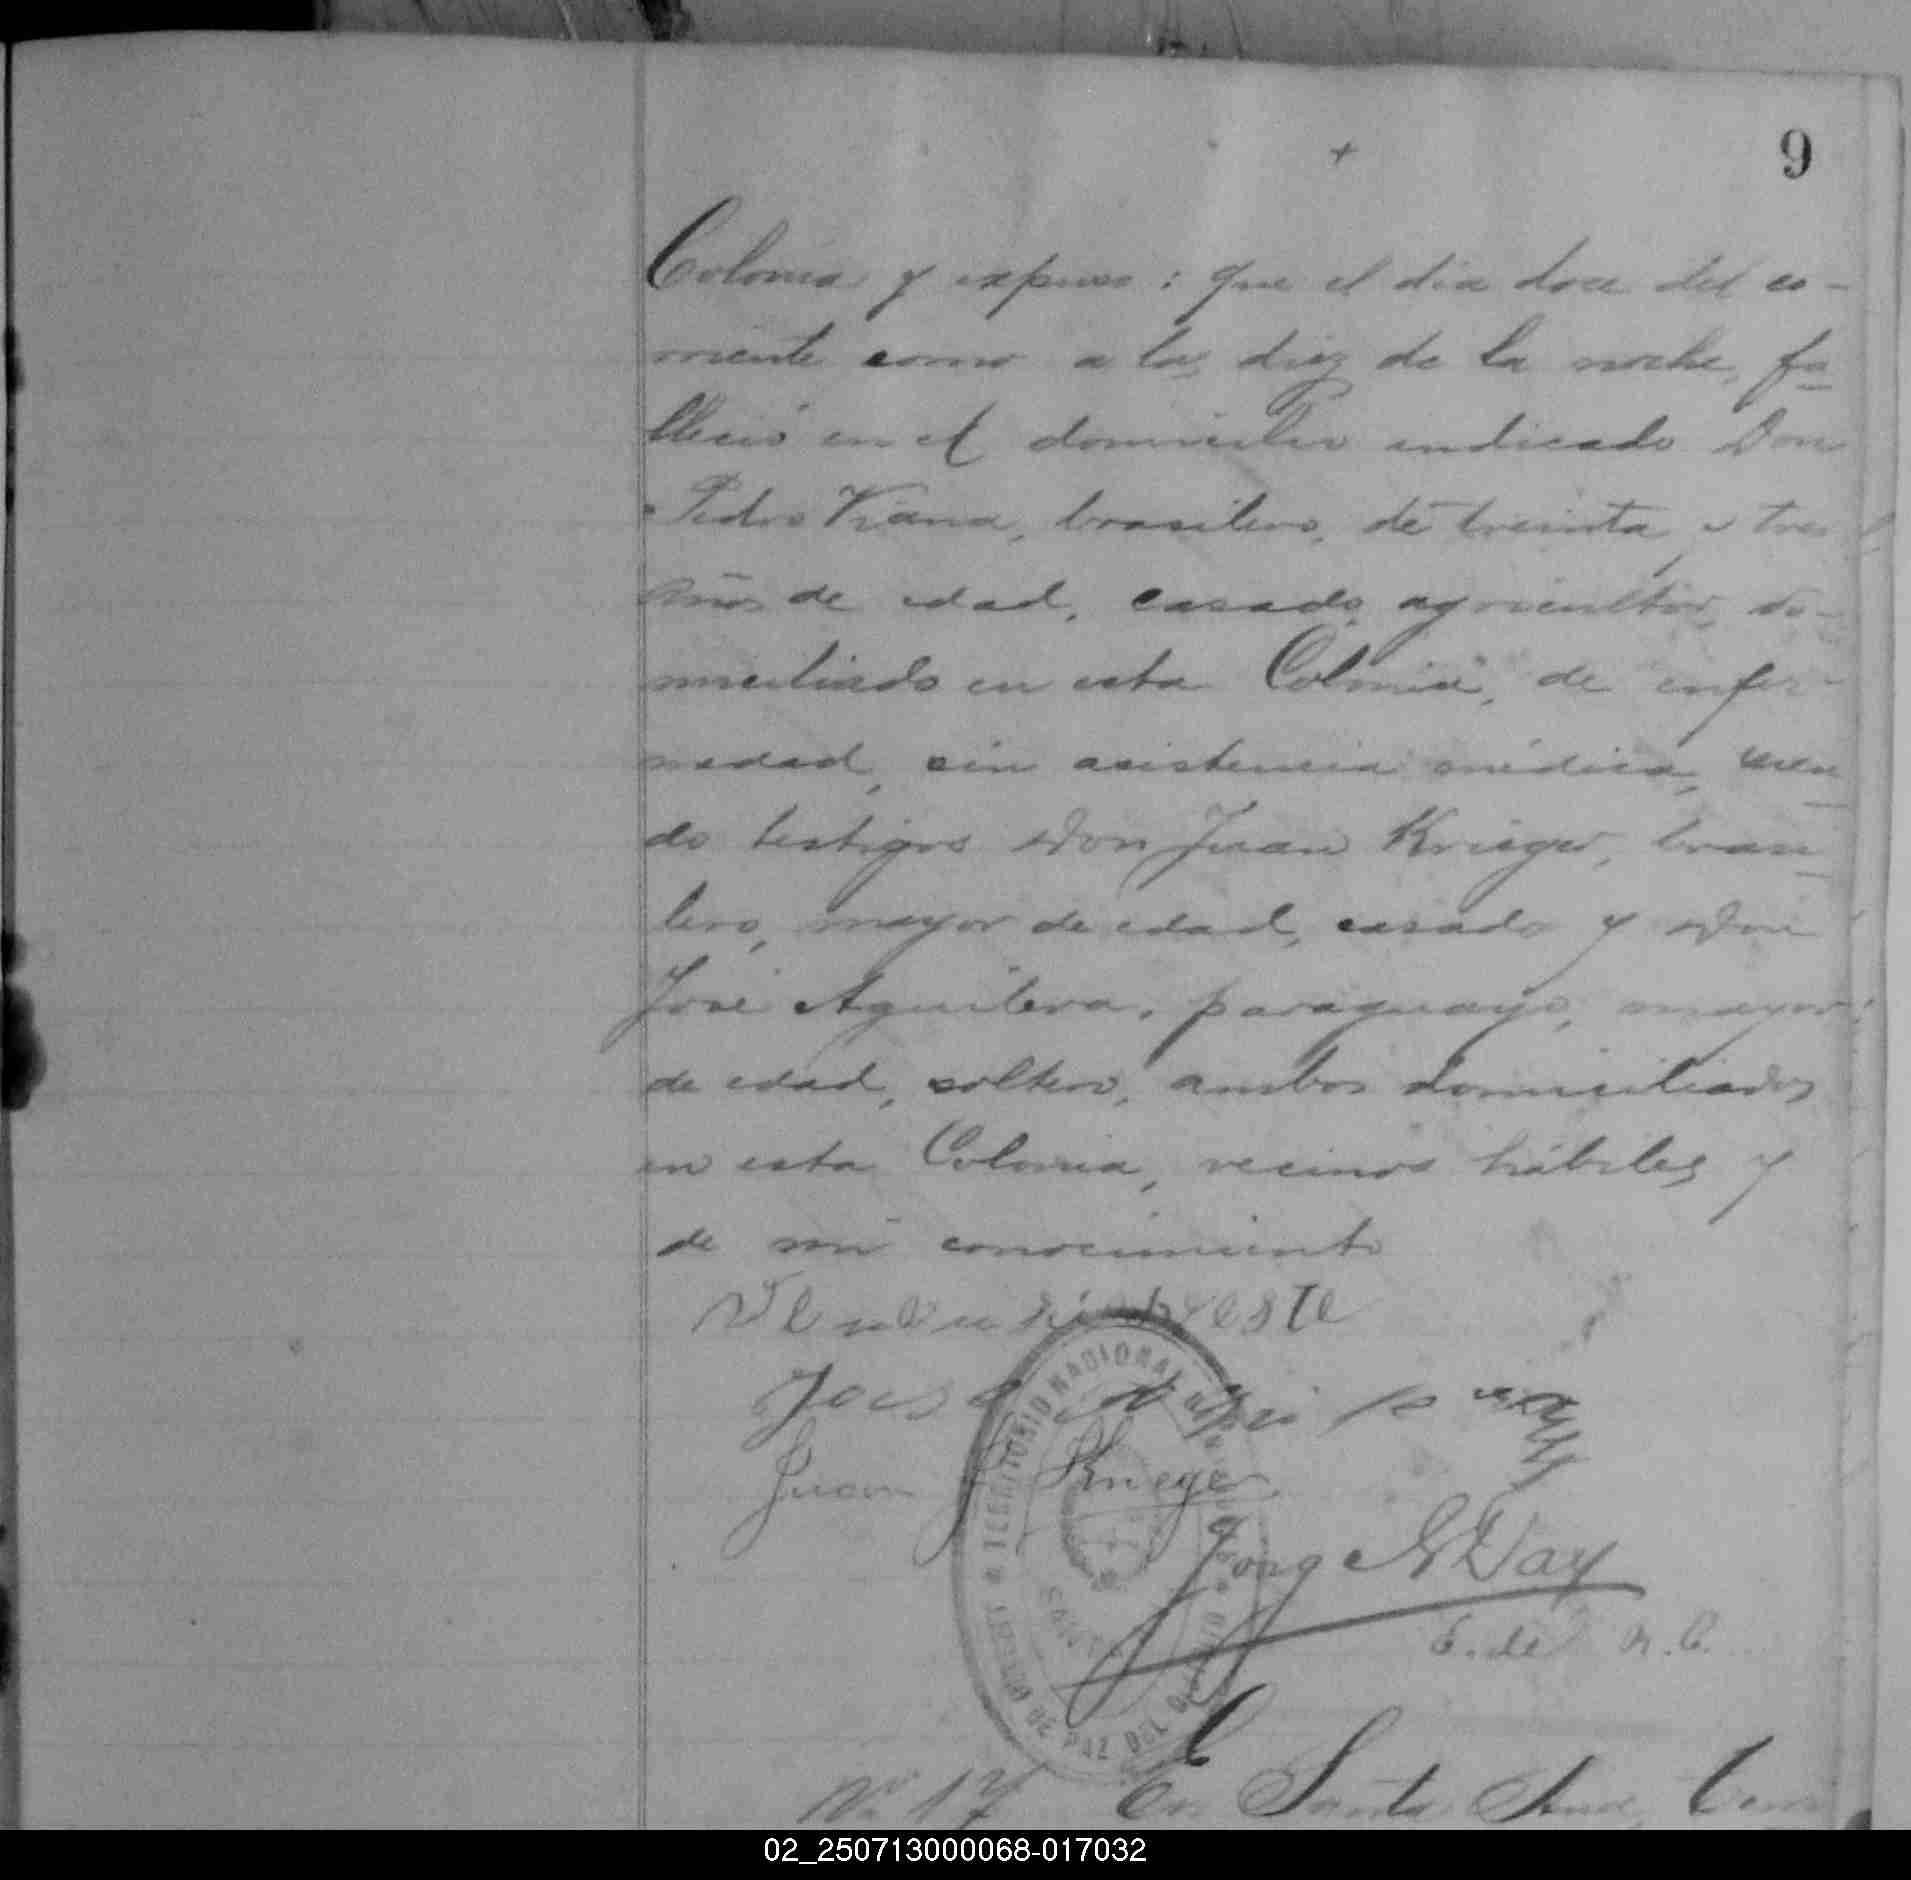 9
Colonia y expuso: que el día doce del co-
rriente como a las diez de la noche, fa-
lleció en el domicilio indicado Don
Pedro Viana, brasilero, de treinta y tres
años de edad, casado, agricultor, do-
miciliado en esta Colonia, de enfer-
medad, sin asistencia médica, sien-
do testigos Don Juan Krieger, brasi-
lero, mayor de edad, casado y Don
José Aguilera, paraguayo, mayor
de edad, soltero, ambos domiciliados
en esta Colonia, vecinos hábiles y
de mi conocimiento
José
Juan Krieger
Jorge
E. de R. C.
TERRITORIO NACIONAL
DE PAZ DEL
No. 17 En Santa Ana,
02_250713000068-017032